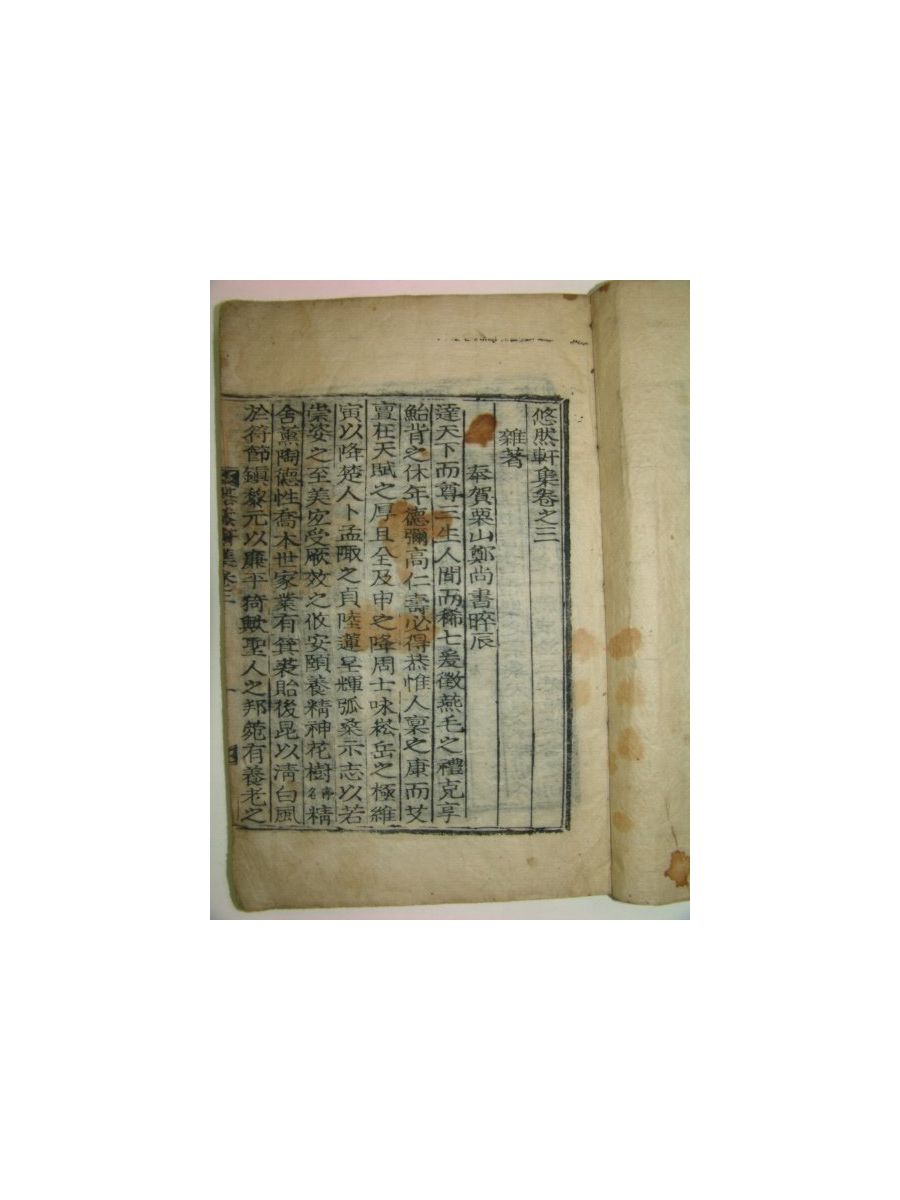 悠然軒集卷之三
雜著
奉賀栗山鄭尚書晬辰
達天下而尊三生人間而稀七爰徵燕毛之禮克享
鮐背之休年德彌高仁壽必得恭惟人稟之康而艾
亶在天賦之厚且全及申之降周士咏崧岳之極維
寅以降楚人卜孟陬之貞陸蓮呈輝弧桑示志以若
崇姿之至美宐受厥效之攸安頤養精神花樹精
舍薰陶德性喬木世家業有箕裘貽後昆以淸白風
於符節鎭黎元以廉平猗歟聖人之邦菀有養老之